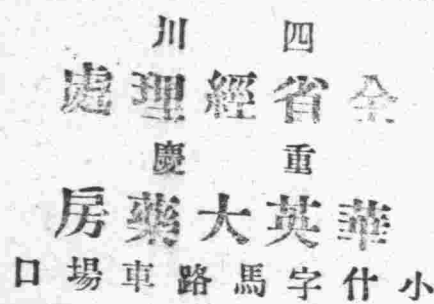 四川
全省經理處
重慶
華英大藥房
小什字馬路車場口